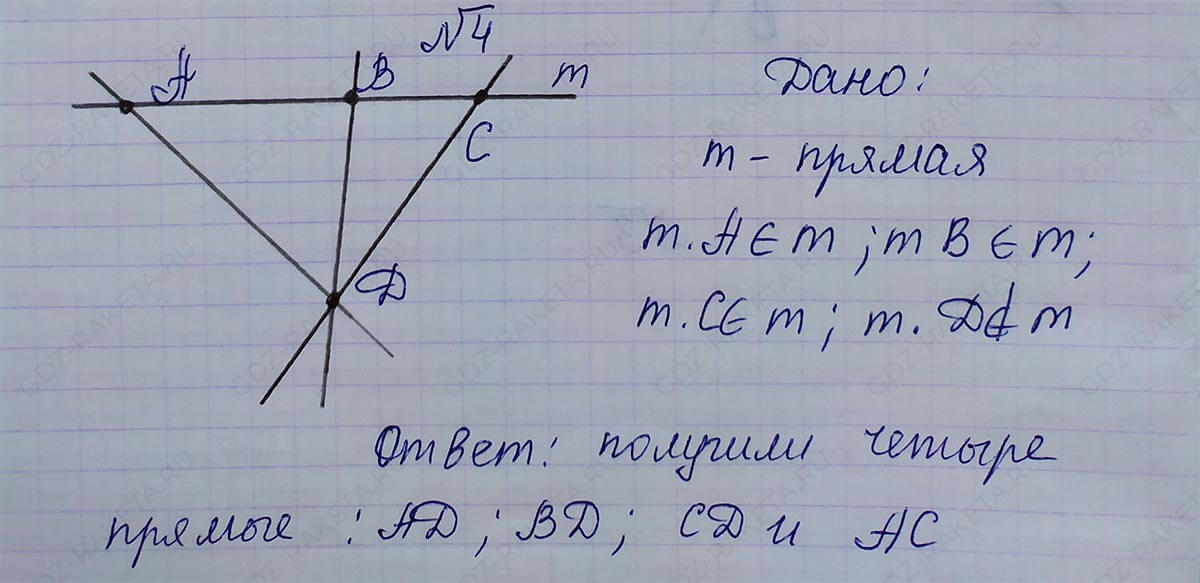 №4
A
B
m
C
D
Дано:
m - прямая
т. A ∈ m ; т B ∈ m;
т. C ∈ m ; т. D ∉ m
Ответ: получили четыре
прямые : AD ; BD ; CD и AC
GDZ-RAKETA.RU